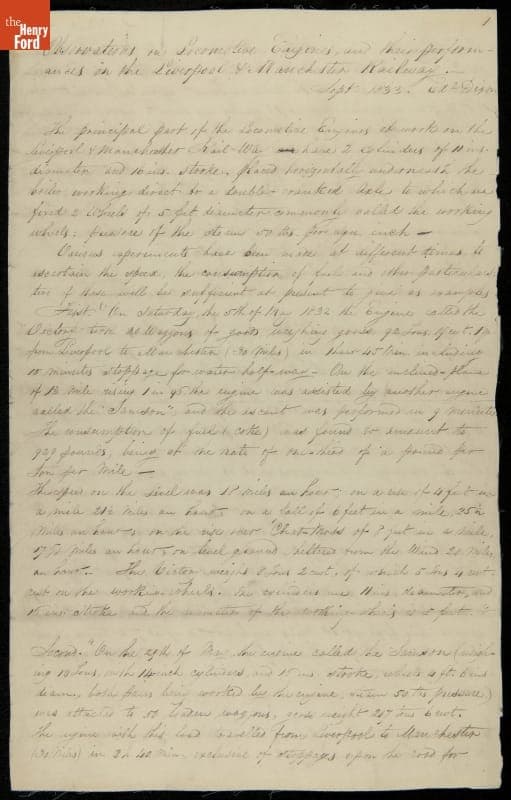 the
Henry
Ford
1
Observations on Locomotive Engines, and their perform-
-ances on the Liverpool & Manchester Railway. —
Sept 1833.
The principal part of the Locomotive Engines at work on the
Liverpool & Manchester Rail-Way have 2 cylinders of 11 ins.
diameter and 16 ins. stroke, placed horizontally underneath the
boiler working direct to a double-cranked Axle to which are
fixed 2 Wheels of 5 feet diameter commonly called the working
wheels: pressure of the steam 50 lbs. per sqr. inch —
Various experiments have been made at different times to
ascertain the speed, the consumption of fuel and other particulars
these will be sufficient at present to give as examples
First. "On Saturday the 5th of May 1832 the Engine called the
took 20 Waggons of goods weighing gross 92 tons 19 cwt. 1 qr
from Liverpool to Manchester (30 Miles) in 45 Min. including
10 minutes stoppage for water half-way — On the inclined-plane
of 1½ Mile rising 1 in 95 the engine was assisted by another engine
called the "Samson", and the ascent was performed in 9 minutes
The consumption of fuel (coke) was found to amount to
929 pounds, being at the rate of one-third of a pound per
ton per Mile —
The speed on the level was 18 miles an hour; on a rise of 4 feet in
a mile 21½ miles an hour on a fall of 6 feet in a mile, 25½
miles an hour; on the rise over Chat-Moss of 8 feet in a mile,
17⅝ miles an hour, on level ground sheltered from the Wind 20 miles
an hour. The weighs 8 tons 2 cwt. of which 5 tons 4 cwt.
on the working-wheels. The cylinders are 11 ins. diameter, and
16 ins. stroke and the diameter of the working-wheels is 5 feet.
Second. "On the 29th of May the engine called the Samson (weigh-
-ing 10 tons, with 14 inch cylinders, and 16 ins. stroke, wheels 4 ft. 6 ins
diam., both pairs being worked by the engine, steam 50 lbs pressure)
was attached to 50 laden wagons, gross weight 217 tons 6 cwt.
The engine with this load travelled from Liverpool to Manchester
(30 Miles) in 2 h 40 Min, exclusive of stoppages upon the road for